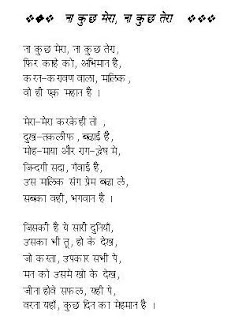 ना कुछ मेरा, ना कुछ तेरा
ना कुछ मेरा, ना कुछ तेरा,
फिर काहे को, अभिमान है,
करन-करावण वाला, मालिक,
वो ही एक महान है ।
मेरा-मेरा करकेही तो ,
दुख-तकलीफ, बढाई है,
मोह-माया और राग-द्वेष मे,
जिन्दगी सदा, गँवाई है,
उस मालिक संग प्रेम बढा ले,
सबका वही, भगवान है ।
जिसकी है ये सारी दुनियाँ,
उसका भी तू, हो के देख,
जो करता, उपकार सभी पे,
मन को उसमे खो के देख,
जीना होवे सफल, यही पे,
वरना यहाँ, कुछ दिन का मेहमान है ।